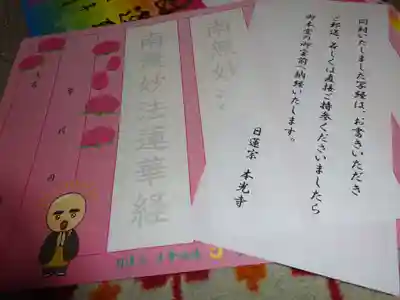 同封いたしました写経は、お書きいただき
ご郵送、若しくは直接ご持参くださいましたら
御本堂の御宝前へ納経いたします。
日蓮宗 本光寺
南無妙
南無妙法蓮華経
年 月 日